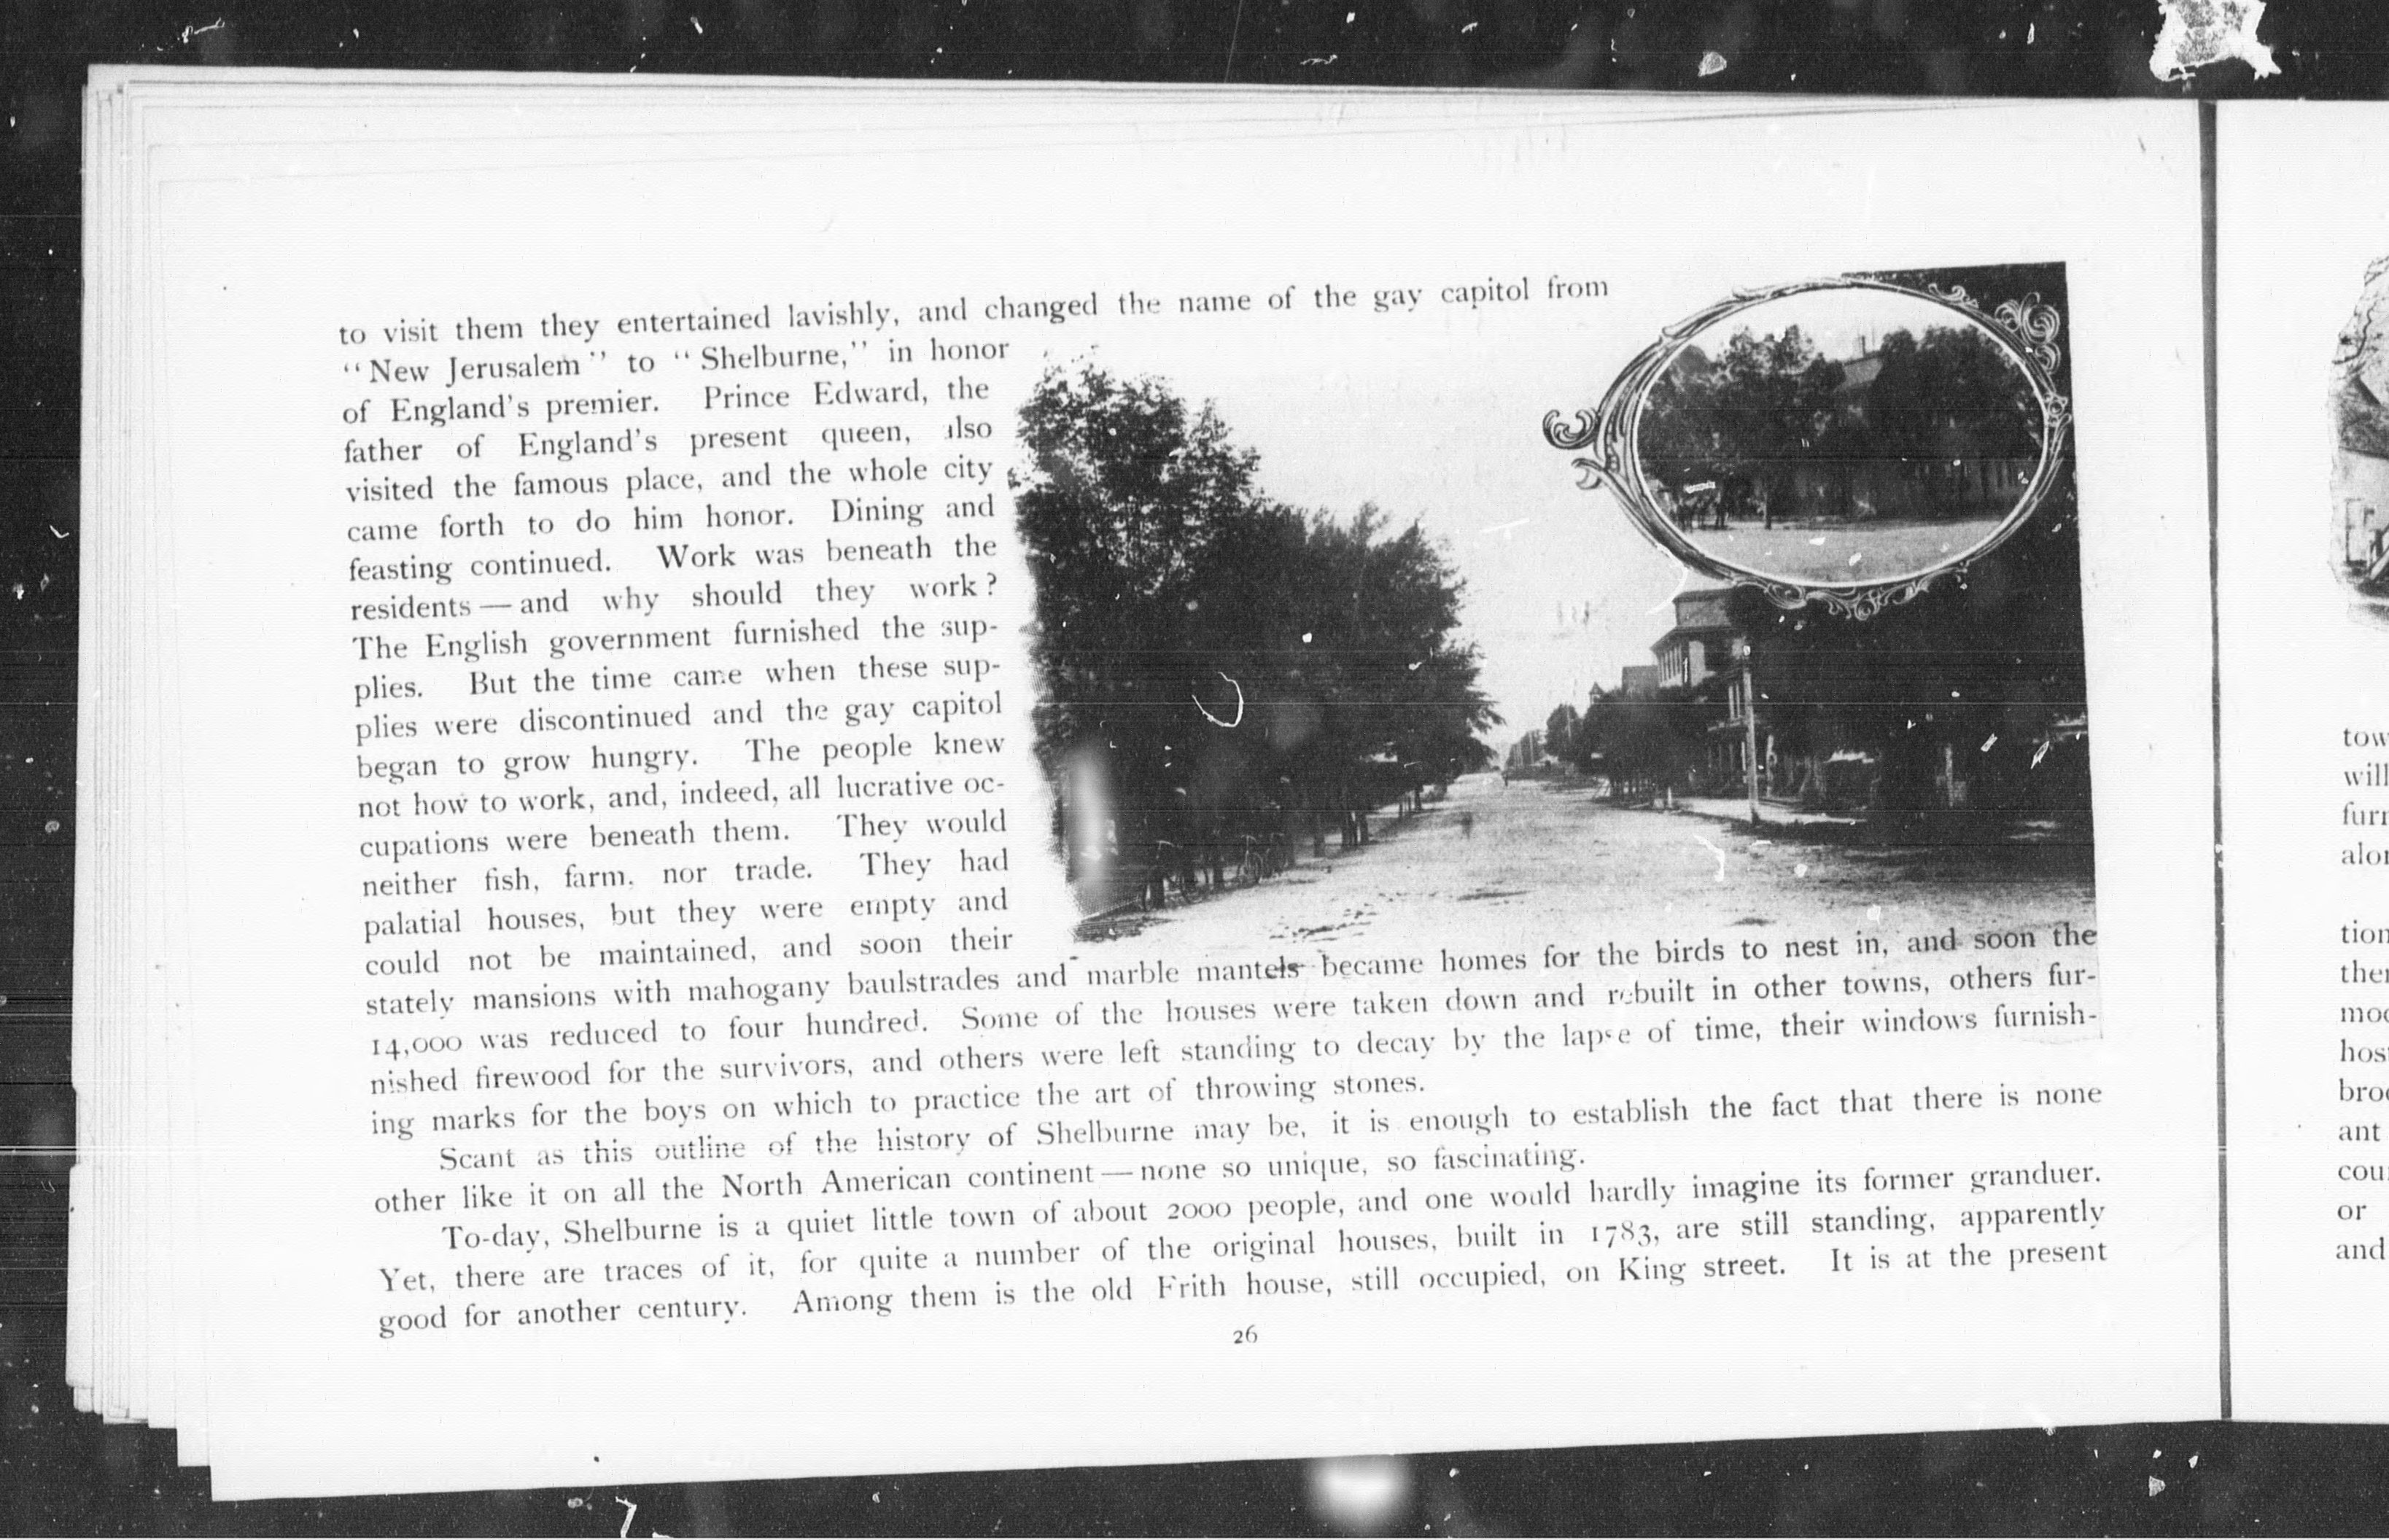 to visit them they entertained lavishly, and changed the name of the gay capitol from
“New Jerusalem” to “Shelburne,” in honor
of England's premier. Prince Edward, the
father of England's present queen, also
visited the famous place, and the whole city
came forth to do him honor. Dining and
feasting continued. Work was beneath the
residents — and why should they work?
The English government furnished the sup-
plies. But the time came when these sup-
plies were discontinued and the gay capitol
began to grow hungry. The people knew
not how to work, and, indeed, all lucrative oc-
cupations were beneath them. They would
neither fish, farm, nor trade. They had
palatial houses, but they were empty and
could not be maintained, and soon their
stately mansions with mahogany baulstrades and marble mantels became homes for the birds to nest in, and soon the
14,000 was reduced to four hundred. Some of the houses were taken down and rebuilt in other towns, others fur-
nished firewood for the survivors, and others were left standing to decay by the lapse of time, their windows furnish-
ing marks for the boys on which to practice the art of throwing stones.
Scant as this outline of the history of Shelburne may be, it is enough to establish the fact that there is none
other like it on all the North American continent — none so unique, so fascinating.
To-day, Shelburne is a quiet little town of about 2000 people, and one would hardly imagine its former granduer.
Yet, there are traces of it, for quite a number of the original houses, built in 1783, are still standing, apparently
good for another century. Among them is the old Frith house, still occupied, on King street. It is at the present
26
tow
will
furn
alon
tion
ther
mod
host
broo
ant
cou
or
and